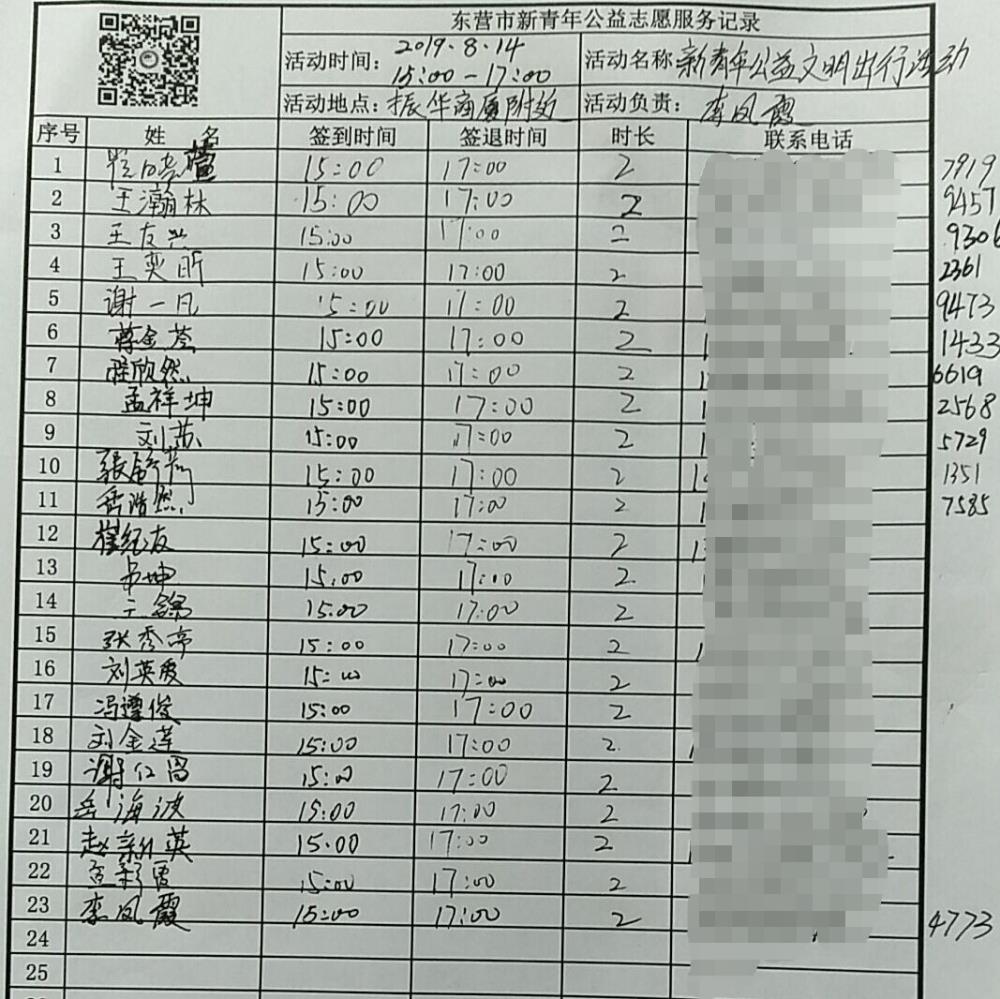 东营市新青年公益志愿服务记录
活动时间: 2019.8.14 15:00-17:00 活动名称 新青年公益文明出行活动
活动地点: 振华商厦附近 活动负责: 李凤霞
序号 姓 名 签到时间 签退时间 时长 联系电话
1 15:00 17:00 2 7919
2 王瀚林 15:00 17:00 2 9457
3 王友兴 15:00 17:00 2 9306
4 王奕昕 15:00 17:00 2 2361
5 谢一凡 15:00 17:00 2 9473
6 蒋金荟 15:00 17:00 2 1433
7 欣然 15:00 17:00 2 6619
8 孟祥坤 15:00 17:00 2 2568
9 刘苏 15:00 17:00 2 5729
10 张 15:00 17:00 2 1351
11 岳浩然 15:00 17:00 2 7585
12 崔纪友 15:00 17:00 2
13 坤 15:00 17:00 2
14 王 15:00 17:00 2
15 张秀亭 15:00 17:00 2
16 刘英爱 15:00 17:00 2
17 冯遵俊 15:00 17:00 2
18 刘金莲 15:00 17:00 2
19 谢仁昌 15:00 17:00 2
20 岳海波 15:00 17:00 2
21 赵新英 15:00 17:00 2
22 彩霞 15:00 17:00 2
23 李凤霞 15:00 17:00 2 4773
24
25